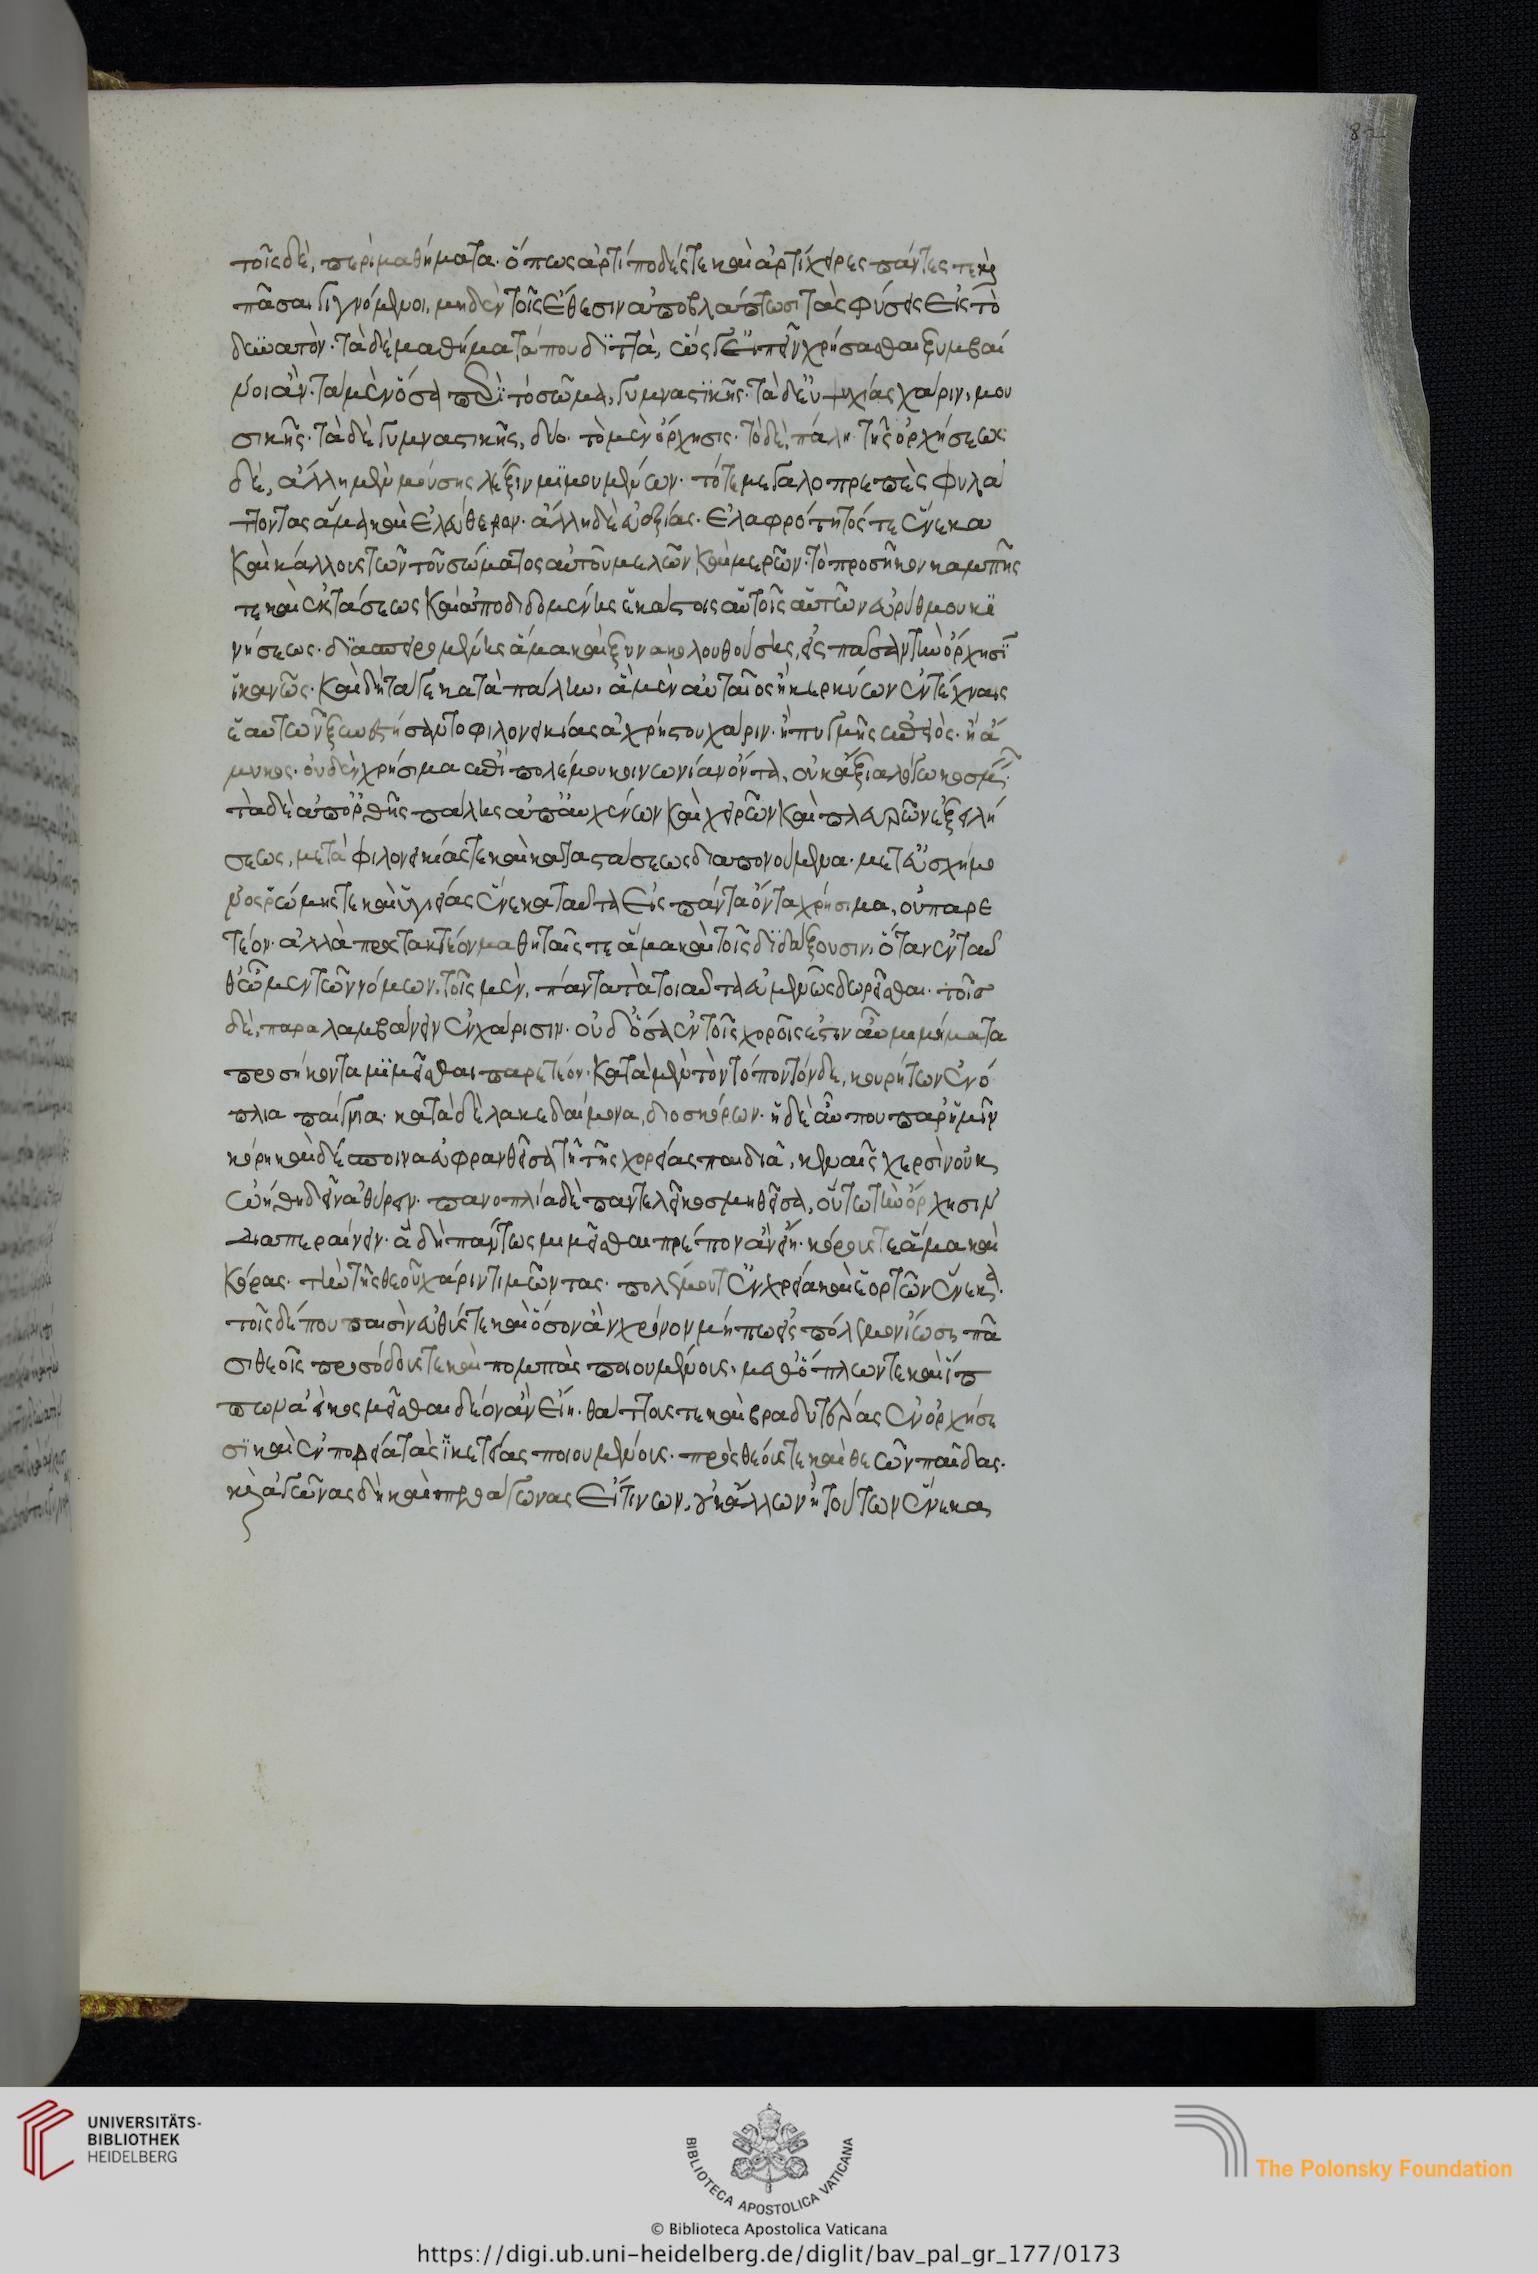 τοῖς δὲ, περὶ μαθήματα· ὅπως ἀρτίποδές τε καὶ ἀρτίχειρες πάντες τε καὶ
πᾶσαι γιγνόμενοι, μηδὲν τοῖς ἔθεσιν ἀποβλάπτωσι τὰς φύσεις εἰς τὸ
δυνατὸν· τὰ δὲ μαθήματά που διττὰ, ὥς γε εἰπεῖν χρήσασθαι ξυμβαί
νοι ἂν· τὰ μὲν ὅσα περὶ τὸ σῶμα, γυμναστικῆς· τὰ δ' εὐψυχίας χάριν, μου
σικῆς· τὰ δὲ γυμναστικῆς, δύο· τὸ μὲν ὄρχησις· τὸ δὲ, πάλη· τῆς ὀρχήσεως
δὲ, ἄλλη μὲν μούσης λέξιν μιμουμένων· τό τε μεγαλοπρεπὲς φυλά
ττοντας ἅμα καὶ ἐλεύθερον· ἄλλη δὲ εὐεξίας· ἐλαφρότητός τε ἕνεκα
καὶ κάλλους τῶν τοῦ σώματος αὐτοῦ μελῶν καὶ μερῶν· τὸ προσῆκον καμπῆς
τε καὶ ἐκτάσεως καὶ ἀποδιδομένης ἑκάστοις αὐτοῖς αὐτῶν εὐρύθμου κι
νήσεως· διασπειρομένης ἅμα καὶ ξυνακολουθούσης, εἰς πᾶσαν τὴν ὄρχησϊ
ἱκανῶς· καὶ δὴ τά γε κατὰ πάλην, ἃ μὲν ἀνταῖος ἢ κερκύων ἐν τέχναις
ἑαυτῶν ξυνεστήσαντο φιλονεικίας ἀχρήστου χάριν· ἢ πυγμῆς ἐπειὸς· ἢ ἄ
μυκος· οὐδὲν χρήσιμα ἐπὶ πολέμου κοινωνίαν ὄντα, οὐκ ἄξια λόγω κοσμεῖν·
τὰ δὲ ἀπ' ὀρθῆς πάλης ἀπ' αὐχένων καὶ χειρῶν καὶ πλευρῶν ἐξειλή
σεως, μετὰ φιλονεικίας τε καὶ καταστάσεως διαπονούμενα· μετ' εὐσχήμο
νος ῥώμης τε καὶ ὑγιείας ἕνεκα ταῦτα εἰς πάντα ὄντα χρήσιμα, οὐ παρε
τέον· ἀλλὰ προστακτέον μαθηταῖς τε ἅμα καὶ τοῖς διδάξουσιν, ὅταν ἐνταῦ
θ' ὦμεν τῶν νόμων, τοῖς μὲν, πάντα τὰ τοιαῦτα εὐμενῶς δωρεῖσθαι· τοῖς
δὲ, παραλαμβάνειν ἐν χάρισιν· οὐδ' ὅσα ἐν τοῖς χοροῖς ἐστιν αὖ μιμήματα
προσήκοντα μιμεῖσθαι παρετέον· κατὰ μὲν τὸν τόπον τόνδε, κουρήτων ἐνό
πλια παίγνια· κατὰ δὲ λακεδαίμονα, διοσκόρων· ἡ δὲ αὖ που παρ' ἡμῖν
κόρη καὶ δέσποινα εὐφρανθεῖσα τῇ τῆς χορείας παιδιᾷ, κεναῖς χερσὶν οὐκ
ὠήθη δεῖν ἀθύρειν· πανοπλία δὲ παντελεῖ κοσμηθεῖσα, οὕτω τὴν ὄρχησιν
διαπεραίνειν· ἃ δὴ πάντως μιμεῖσθαι πρέπον ἂν εἴη· κόρους τε ἅμα καὶ
κόρας· τὴν τῆς θεοῦ χάριν τιμῶντας· πολέμου τ' ἐν χρεία καὶ ἑορτῶν ἕνεκα·
τοῖς δέ που παισὶν εὐθύς τε καὶ ὅσον ἂν χρόνον μήπω εἰς πόλεμον ἴωσι, πᾶ
σι θεοῖς προσόδους τε καὶ πομπὰς ποιουμένους, μεθ' ὅπλων τε καὶ ἵπ
πων ἀεὶ κοσμεῖσθαι δέον ἂν εἴη· θάττους τε καὶ βραδυτέρας ἐν ὀρχήσε
σι καὶ ἐν πορεία τὰς ἱκετείας ποιουμένους· πρὸς θεούς τε καὶ θεῶν παῖδας·
καὶ ἀγῶνας δὴ καὶ προαγῶνας εἴ τινων, οὐκ ἄλλων ἢ τούτων ἕνεκα
82
UNIVERSITÄTS-
BIBLIOTHEK
HEIDELBERG
BIBLIOTECA APOSTOLICA VATICANA
© Biblioteca Apostolica Vaticana
The Polonsky Foundation
https://digi.ub.uni-heidelberg.de/diglit/bav_pal_gr_177/0173